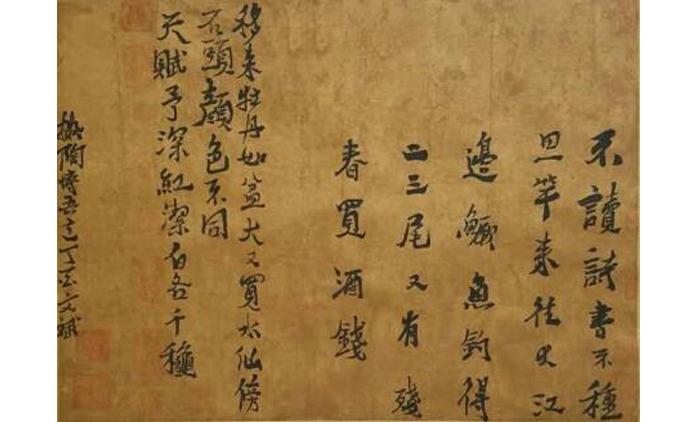 不讀詩書不種
田一竿来往大江
邊鱖魚釣得
二三尾又有殘
春買酒錢
移来牡丹如盆大又買水仙傍
石頭顏色不同
天賦予深紅潔白各千種
陶博吾丁亥文斌